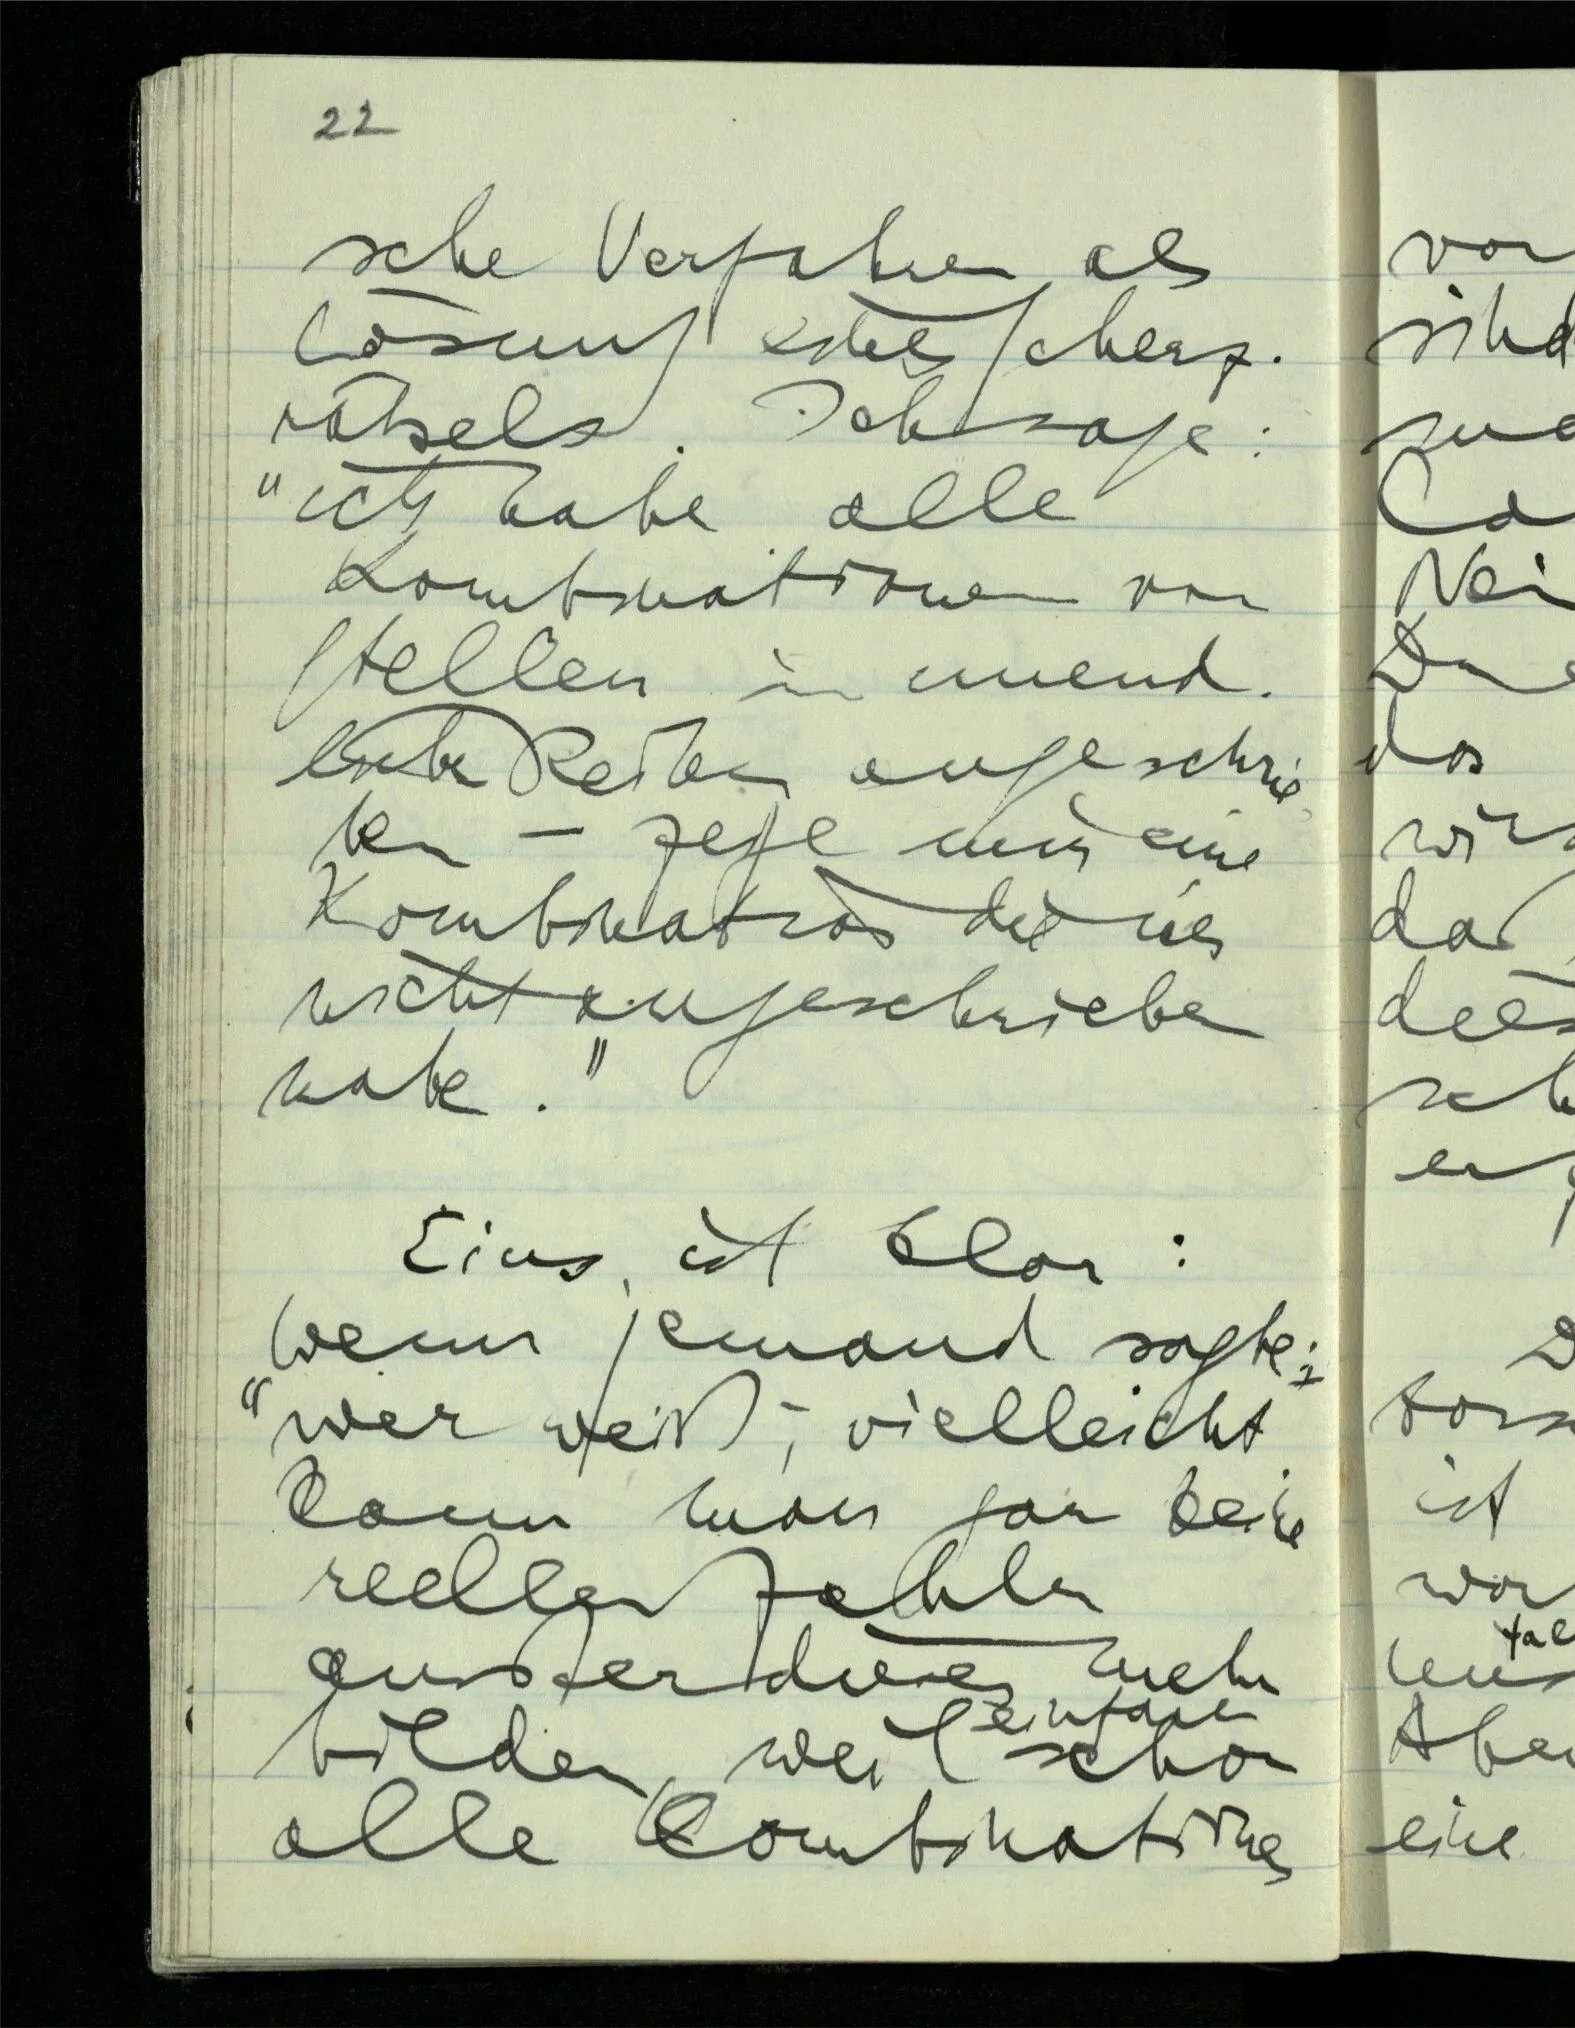 22
sche Verfahren als
Lösung eines Scherz-
rätsels. Ich sage:
"ich habe alle
Kombinationen von
Stellen in unend-
liche Reihen angeschrie-
ben – zeige mir eine
Kombination die ich
nicht angeschrieben
habe."
Eins ist klar:
wenn jemand sagte:
"wer weiß, vielleicht
kann man gar keine
reellen Zahlen
außer diesen mehr
einfach
bilden, weil schon
alle Kombinationen
vor
sind
Nei
das
wir
da
sch
ist
wor
Aber
eine